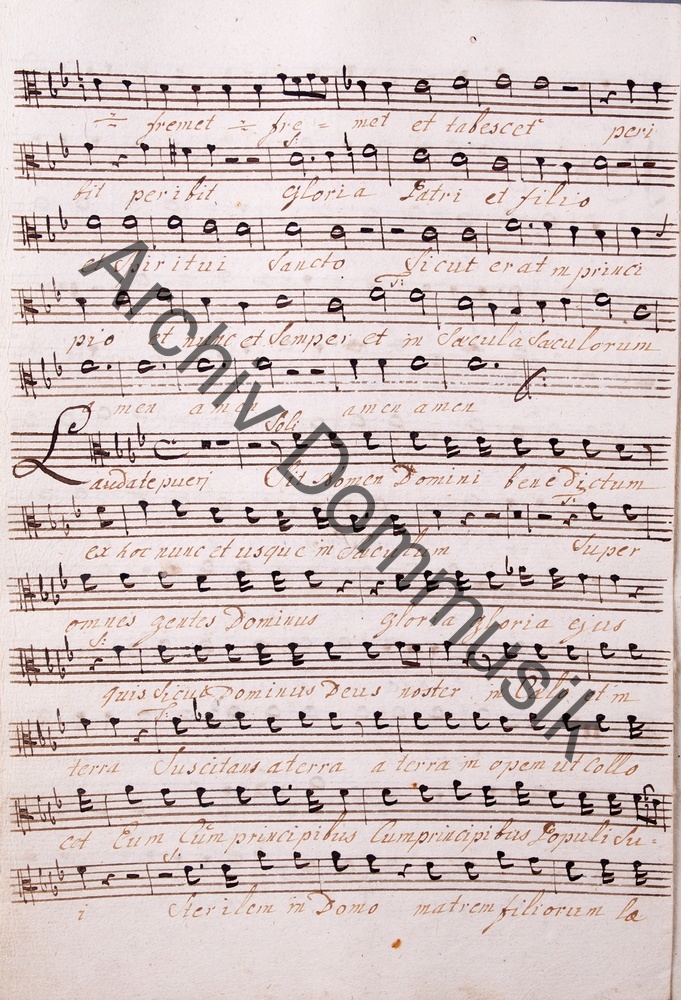 fremet fre = met et tabescet peri
bit peribit Gloria Patri et filio
et Spiritui Sancto Sicut erat in princi
pio et nunc et Semper et in Sæcula Sæculorum
amen amen amen amen
Soli
Laudate pueri Sit Nomen Domini benedictum
ex hoc nunc et usque in Sæculum Super
omnes gentes Dominus gloria gloria ejus
quis Sicut Dominus Deus noster in Cælo et in
terra Suscitans a terra a terra in opem ut Collo
cet Eum Cum principibus Cum principibus Populi Su=
i Sterilem in Domo matrem filiorum læ
Archiv Dommusik